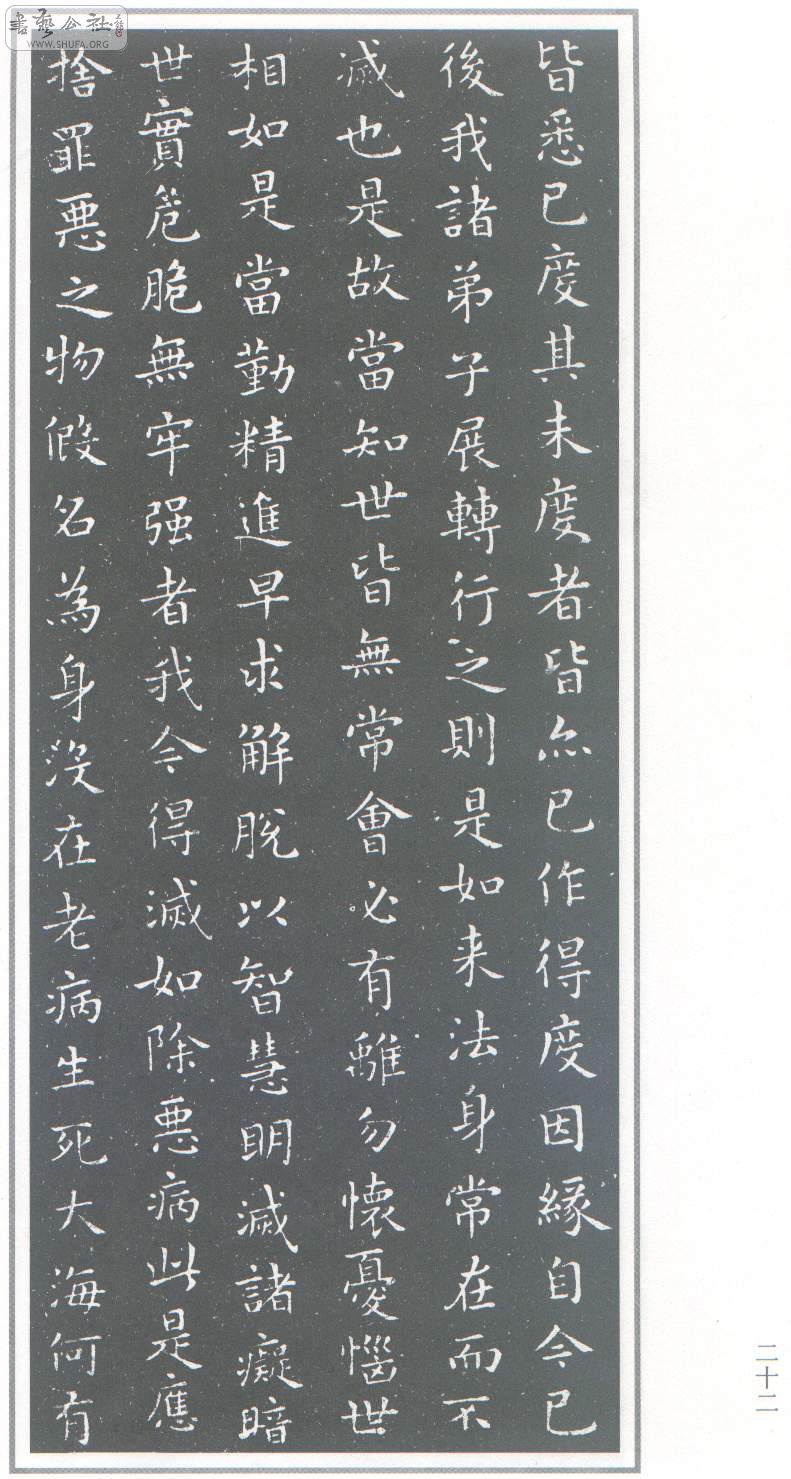 皆悉已度其未度者皆亦已作得度因緣自今已
後我諸弟子展轉行之則是如来法身常在而不
滅也是故當知世皆無常會必有離勿懷憂惱世
相如是當勤精進早求解脫以智慧明滅諸癡暗
世實危脆無牢强者我今得滅如除惡病此是應
捨罪惡之物假名為身没在老病生死大海何有
二十二
書藝公社
WWW.SHUFA.ORG